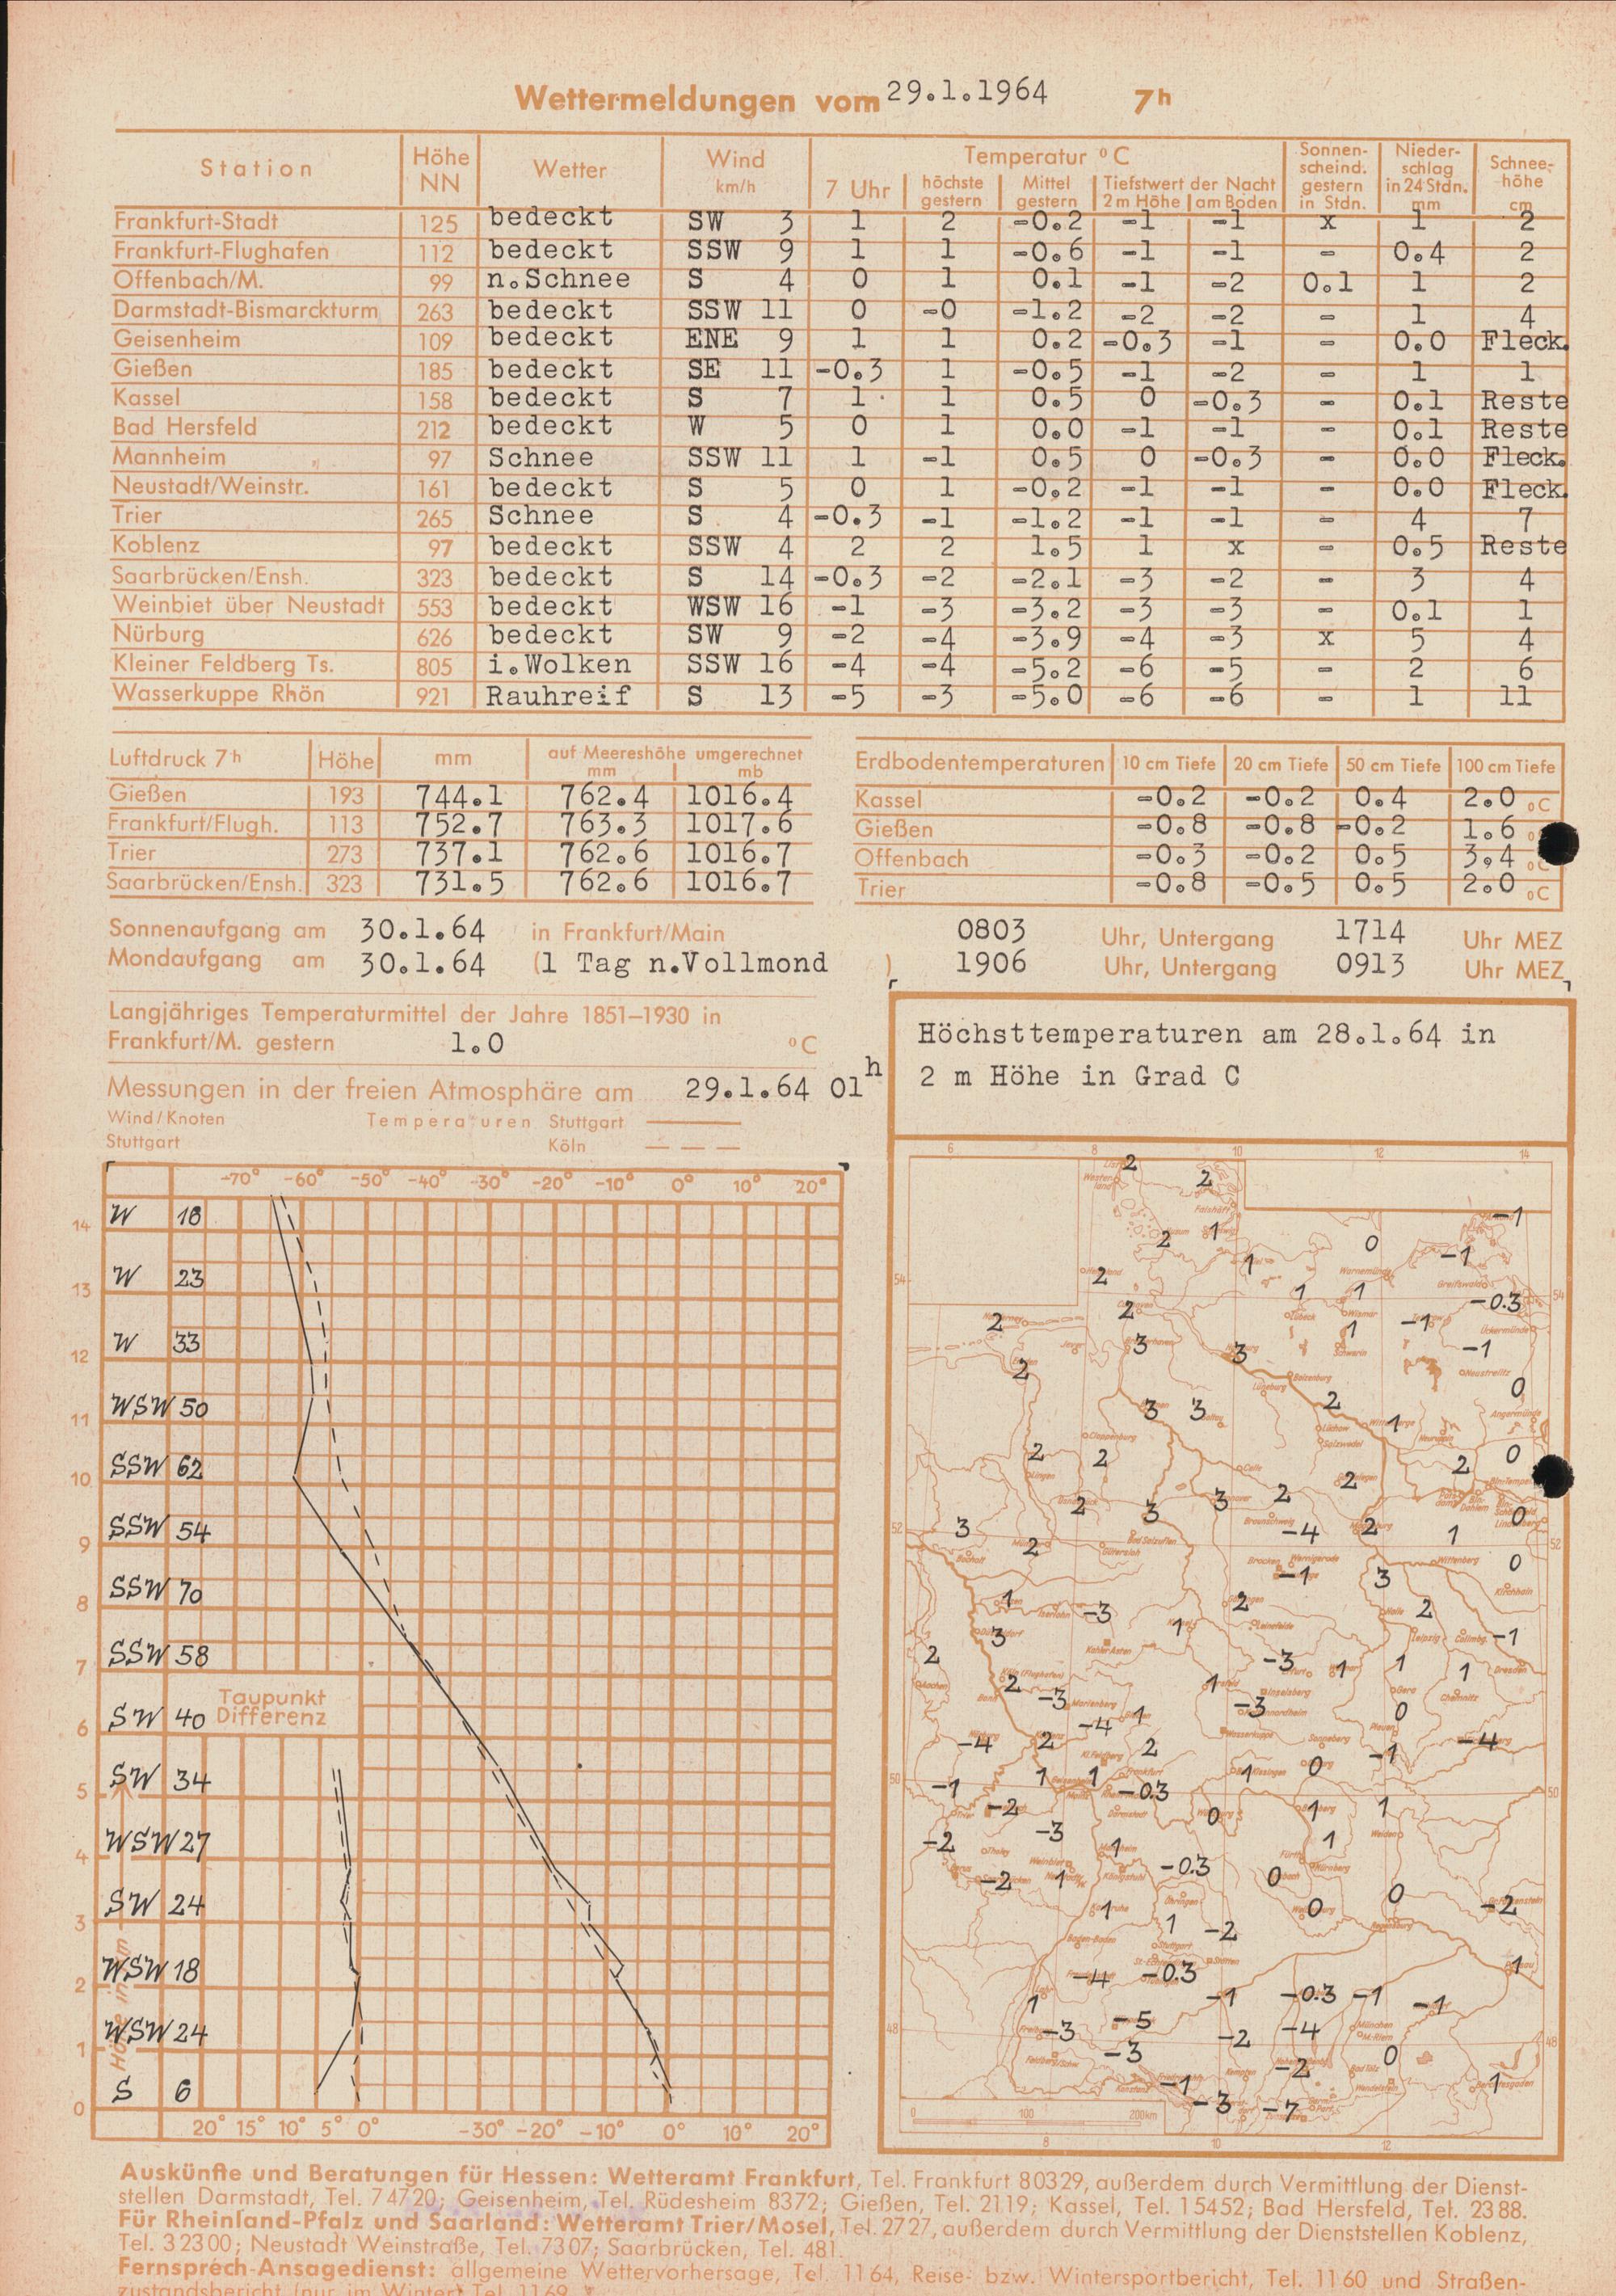 Wettermeldungen vom 29.1.1964 7h
Station Höhe NN Wetter Wind km/h Temperatur °C Sonnenscheind. gestern in Stdn. Niederschlag in 24 Stdn. mm Schneehöhe cm
7 Uhr höchste gestern Mittel gestern Tiefstwert der Nacht 2 m Höhe am Boden
Frankfurt-Stadt 125 bedeckt SW 3 1 2 -0.2 -1 -1 x 1 2
Frankfurt-Flughafen 112 bedeckt SSW 9 1 1 -0.6 -1 -1 - 0.4 2
Offenbach/M. 99 n.Schnee S 4 0 1 0.1 -1 -2 0.1 1 2
Darmstadt-Bismarckturm 263 bedeckt SSW 11 0 -0 -1.2 -2 -2 - 1 4
Geisenheim 109 bedeckt ENE 9 1 1 0.2 -0.3 -1 - 0.0 Fleck.
Gießen 185 bedeckt SE 11 -0.3 1 -0.5 -1 -2 - 1 1
Kassel 158 bedeckt S 7 1 1 0.5 0 -0.3 - 0.1 Reste
Bad Hersfeld 212 bedeckt W 5 0 1 0.0 -1 -1 - 0.1 Reste
Mannheim 97 Schnee SSW 11 1 -1 0.5 0 -0.3 - 0.0 Fleck.
Neustadt/Weinstr. 161 bedeckt S 5 0 1 -0.2 -1 -1 - 0.0 Fleck.
Trier 265 Schnee S 4 -0.3 -1 -1.2 -1 -1 - 4 7
Koblenz 97 bedeckt SSW 4 2 2 1.5 1 x - 0.5 Reste
Saarbrücken/Ensh. 323 bedeckt S 14 -0.3 -2 -2.1 -3 -2 - 3 4
Weinbiet über Neustadt 553 bedeckt WSW 16 -1 -3 -3.2 -3 -3 - 0.1 1
Nürburg 626 bedeckt SW 9 -2 -4 -3.9 -4 -3 x 5 4
Kleiner Feldberg Ts. 805 i.Wolken SSW 16 -4 -4 -5.2 -6 -5 - 2 6
Wasserkuppe Rhön 921 Rauhreif S 13 -5 -3 -5.0 -6 -6 - 1 11
Luftdruck 7h Höhe mm auf Meereshöhe umgerechnet mm mb
Gießen 193 744.1 762.4 1016.4
Frankfurt/Flugh. 113 752.7 763.3 1017.6
Trier 273 737.1 762.6 1016.7
Saarbrücken/Ensh. 323 731.5 762.6 1016.7
Erdbodentemperaturen 10 cm Tiefe 20 cm Tiefe 50 cm Tiefe 100 cm Tiefe
Kassel -0.2 -0.2 0.4 2.0 °C
Gießen -0.8 -0.8 -0.2 1.6
Offenbach -0.3 -0.2 0.5 3,4 °C
Trier -0.8 -0.5 0.5 2.0 °C
Sonnenaufgang am 30.1.64 in Frankfurt/Main 0803 Uhr, Untergang 1714 Uhr MEZ
Mondaufgang am 30.1.64 (1 Tag n.Vollmond ) 1906 Uhr, Untergang 0913 Uhr MEZ
Langjähriges Temperaturmittel der Jahre 1851–1930 in
Frankfurt/M. gestern 1.0 °C
Messungen in der freien Atmosphäre am 29.1.64 01h
Wind/Knoten Temperaturen Stuttgart
Stuttgart Köln
-70° -60° -50° -40° -30° -20° -10° 0° 10° 20°
14 W 18
13 W 23
12 W 33
11 WSW 50
10 SSW 62
9 SSW 54
8 SSW 70
7 SSW 58
Taupunkt
Differenz
6 SW 40
5 SW 34
4 WSW 27
3 SW 24
2 WSW 18
1 WSW 24
0 S 6
Höhe in km
20° 15° 10° 5° 0° -30° -20° -10° 0° 10° 20°
Höchsttemperaturen am 28.1.64 in
2 m Höhe in Grad C
6 8 10 12 14
2
2
2 1 1 0 -1
-1
54 2 1 1 -0.3 54
2 2 1 -1
3 3 -1
2 0
3 3 2 1
2 2 2 2 0
2 3 3 2
52 3 2 -4 2 1 0 52
-1 3 0
1 -3 1 2 2
3 -1
2 2 -3 1 -3 1 1 1
-3 0
-4 2 -4 1 2 -1 -4
50 -1 1 1 -0.3 1 0 50
-2 0 1 1
-2 -3 1 -0.3 1
-2 1 0
1 1 -2 0 0 -2
-4 -0.3 1
1 -1 -0.3 -1 -1
48 -3 -5 -2 -4 48
-3 -2 0
-1 -3 -7 1
0 100 200km
8 10 12
Auskünfte und Beratungen für Hessen: Wetteramt Frankfurt, Tel. Frankfurt 80329, außerdem durch Vermittlung der Dienst-
stellen Darmstadt, Tel. 74720; Geisenheim, Tel. Rüdesheim 8372; Gießen, Tel. 2119; Kassel, Tel. 15452; Bad Hersfeld, Tel. 2388.
Für Rheinland-Pfalz und Saarland: Wetteramt Trier/Mosel, Tel. 2727, außerdem durch Vermittlung der Dienststellen Koblenz,
Tel. 32300; Neustadt Weinstraße, Tel. 7307; Saarbrücken, Tel. 481.
Fernsprech-Ansagedienst: allgemeine Wettervorhersage, Tel. 1164, Reise- bzw. Wintersportbericht, Tel. 1160 und Straßen-
zustandsbericht (nur im Winter) Tel. 1169